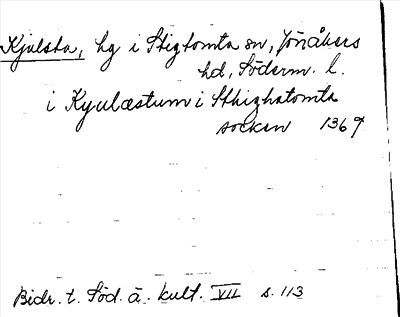 Kjulsta, hg i Stigtomta sn, Jönåkers
hd, Söderm. l.
i Kyulæstum i Sthightomta
socken 1369
Bidr. t. Söd. ä. kult. VII s. 113